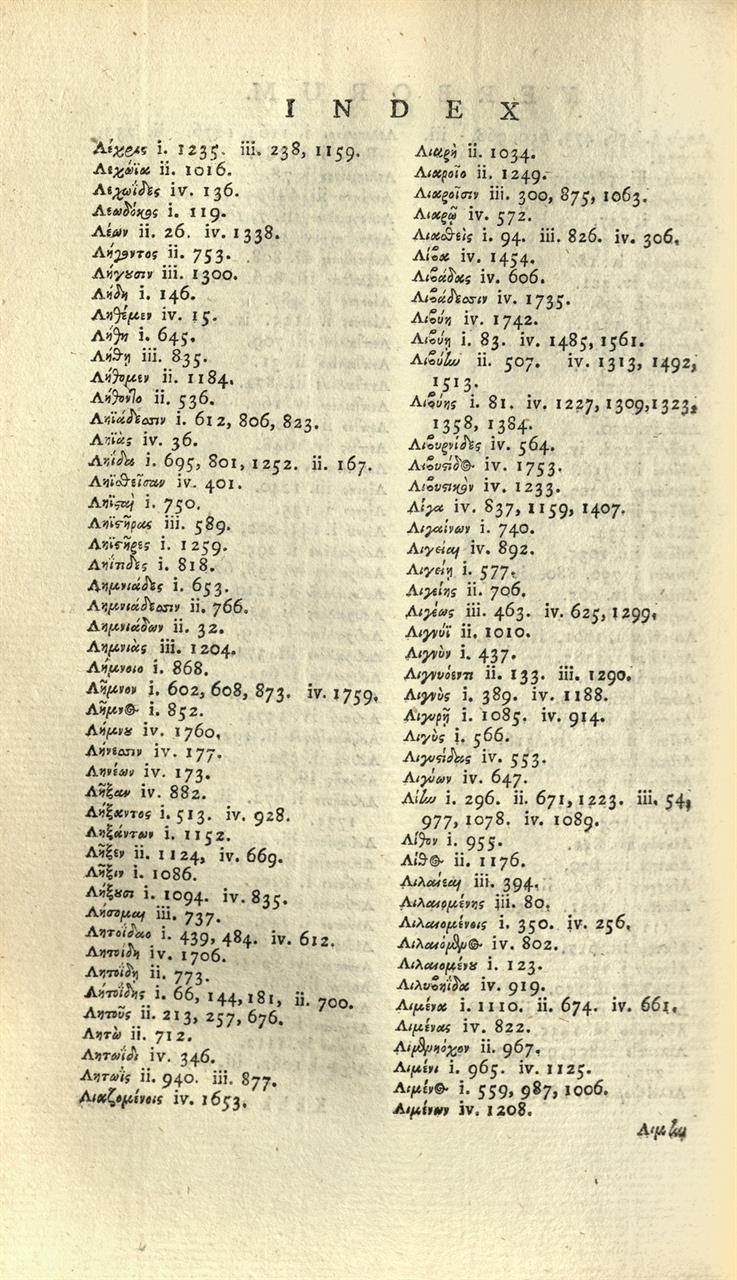 INDEX
Λέχρις i. 1235. iii. 238, 1159.
Λεχώϊα ii. 1016.
Λεχωΐδες iv. 136.
Λεωδόκος i. 119.
Λέων ii. 26. iv. 1338.
Λήγοντος ii. 753.
Λήγουσιν iii. 1300.
Λήδη i. 146.
Ληθέμεν iv. 15.
Λήθη i. 645.
Λήθη iii. 835.
Λήθομεν ii. 1184.
Λήθοντο ii. 536.
Ληϊάδεσσιν i. 612, 806, 823.
Ληϊὰς iv. 36.
Ληΐδα i. 695, 801, 1252. ii. 167.
Ληϊσθεῖσαν iv. 401.
Ληϊσταὶ i. 750.
Ληϊστῆρας iii. 589.
Ληϊστῆρες i. 1259.
Ληίτιδες i. 818.
Λημνιάδες i. 653.
Λημνιάδεσσιν ii. 766.
Λημνιάδων ii. 32.
Λημνιάς iii. 1204.
Λήμνοιο i. 868.
Λῆμνον i. 602, 608, 873. iv. 1759.
Λῆμνος i. 852.
Λήμνου iv. 1760.
Λήνεσσιν iv. 177.
Ληνέων iv. 173.
Λῆξαν iv. 882.
Λήξαντος i. 513. iv. 928.
Ληξάντων i. 1152.
Λῆξεν ii. 1124, iv. 669.
Λῆξιν i. 1086.
Λήξουσι i. 1094. iv. 835.
Λήσομαι iii. 737.
Λητοΐδαο i. 439, 484. iv. 612.
Λητοΐδη iv. 1706.
Λητοΐδη ii. 773.
Λητοΐδης i. 66, 144, 181, ii. 700.
Λητοῦς ii. 213, 257, 676.
Λητὼ ii. 712.
Λητωΐδι iv. 346.
Λητωῒς ii. 940. iii. 877.
Λιαζομένοις iv. 1653.
Λιαρὴ ii. 1034.
Λιαροῖο ii. 1249.
Λιαροῖσιν iii. 300, 875, 1063.
Λιαρῷ iv. 572.
Λιασθεὶς i. 94. iii. 826. iv. 306.
Λίβα iv. 1454.
Λιβάδας iv. 606.
Λιβάδεσσιν iv. 1735.
Λιβύη iv. 1742.
Λιβύη i. 83. iv. 1485, 1561.
Λιβύην ii. 507. iv. 1313, 1492,
1513.
Λιβύης i. 81. iv. 1227, 1309, 1323,
1358, 1384.
Λιβυρνίδες iv. 564.
Λιβυστίδος iv. 1753.
Λιβυστικὸν iv. 1233.
Λίγα iv. 837, 1159, 1407.
Λιγαίνων i. 740.
Λιγείαι iv. 892.
Λιγείῃ i. 577.
Λιγείης ii. 706.
Λιγέως iii. 463. iv. 625, 1299.
Λιγνύϊ ii. 1010.
Λιγνὺν i. 437.
Λιγνυόεντι ii. 133. iii. 1290.
Λιγνὺς i. 389. iv. 1188.
Λιγυρῇ i. 1085. iv. 914.
Λιγὺς i. 566.
Λιγυστίδας iv. 553.
Λιγύων iv. 647.
Λίην i. 296. ii. 671, 1223. iii. 54,
977, 1078. iv. 1089.
Λίθον i. 955.
Λίθος ii. 1176.
Λιλαίεαι iii. 394.
Λιλαιομένης iii. 80.
Λιλαιομένοις i. 350. iv. 256.
Λιλαιόμενος iv. 802.
Λιλαιομένου i. 123.
Λιλυβηΐδα iv. 919.
Λιμένα i. 1110. ii. 674. iv. 661.
Λιμένας iv. 822.
Λιμενήοχον ii. 967.
Λιμένι i. 965. iv. 1125.
Λιμένος i. 559, 987, 1006.
Λιμένων iv. 1208.